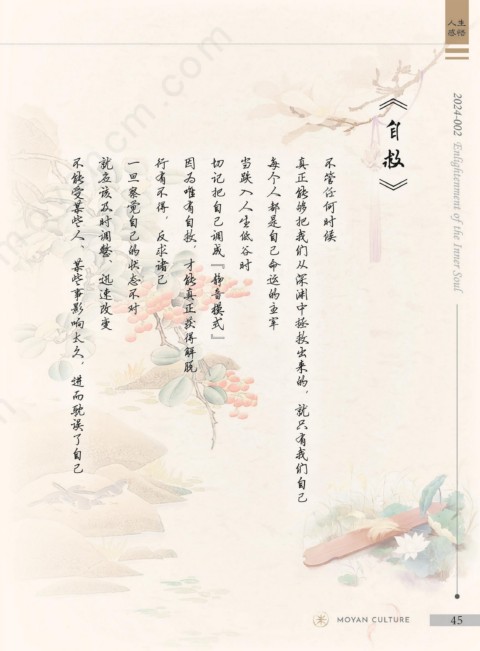 人生
感悟
2024-002 Enlightenment of the Inner Soul
《自救》
不管任何时候
真正能够把我们从深渊中拯救出来的，就只有我们自己
每个人都是自己命运的主宰
当跌入人生低谷时
切记把自己调成『静音模式』
因为唯有自救，才能真正获得解脱
行有不得，反求诸己
一旦察觉自己的状态不对
就应该及时调整、迅速改变
不能受某些人、某些事影响太久，进而耽误了自己
MOYAN CULTURE
45